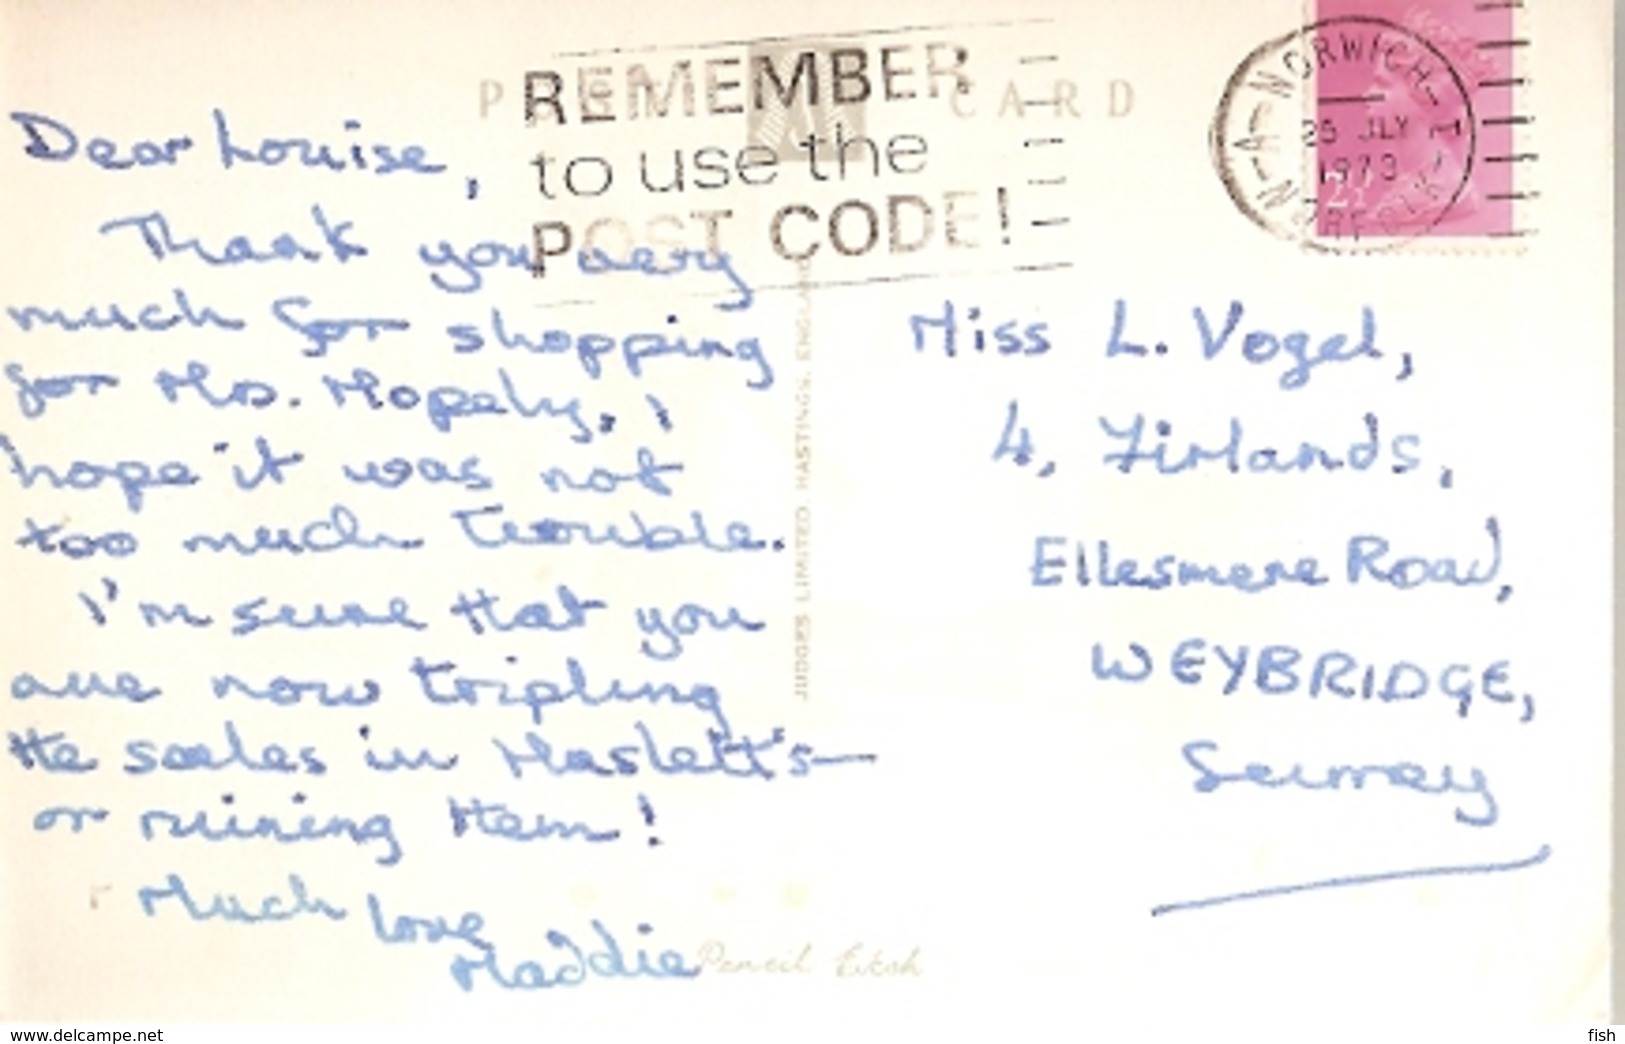 POST CARD
REMEMBER
to use the
POST CODE!
NORWICH
25 JLY
1973
NORFOLK
Dear Louise,
Thank you very
much for shopping
for Mrs. Mopely, I
hope it was not
too much trouble.
I'm sure that you
are now tripling
the sales in Haslett's—
or ruining them!
Much love
Maddie
Miss L. Vogel,
4, Firlands,
Ellesmere Road,
WEYBRIDGE,
Surrey
JUDGES LIMITED, HASTINGS, ENGLAND
Pencil Etch
www.delcampe.net
fish